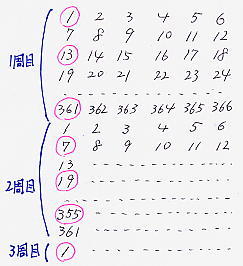 1周目
1 2 3 4 5 6
7 8 9 10 11 12
13 14 15 16 17 18
19 20 21 22 23 24
361 362 363 364 365 366
2周目
1 2 3 4 5 6
7 8 9 10 11 12
13
19
355
361
3周目
1